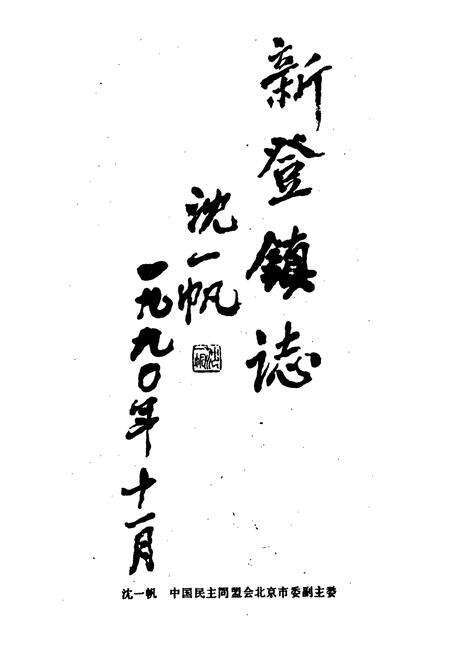 新登鎮誌
沈一帆
一九九〇年十一月
沈一帆 中国民主同盟会北京市委副主委